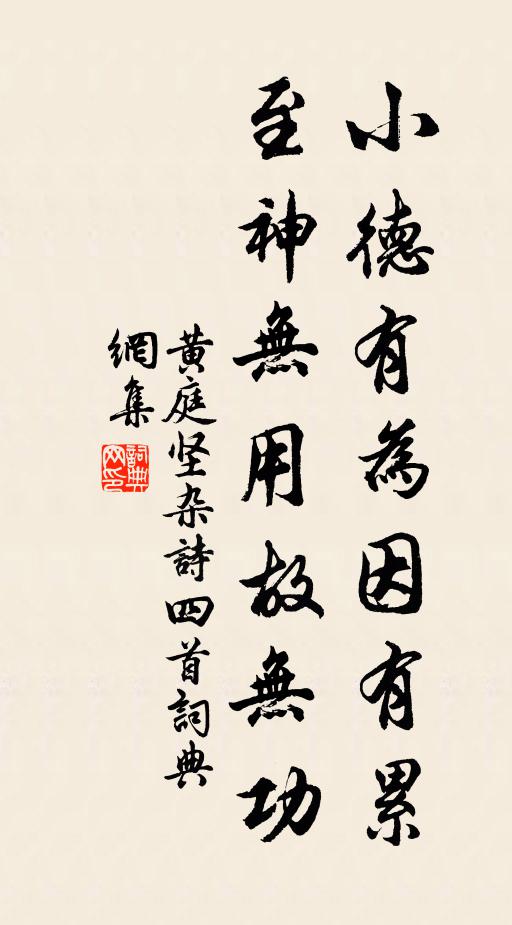 小德有為因有累
至神無用故無功
黃庭坚杂詩四首詞典
網集
詞典
网印